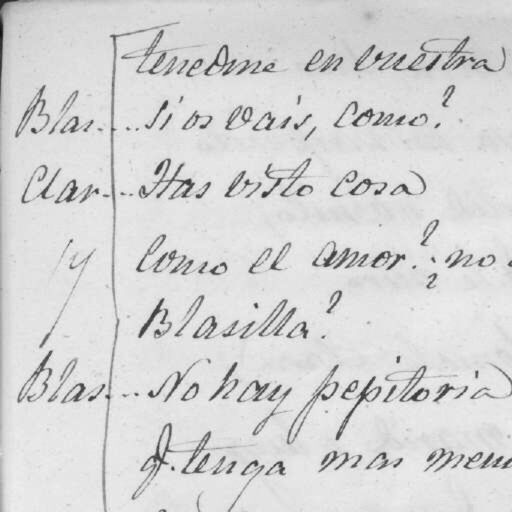 tenedme en vuestra
Blas... si os vais, como?
Clar... Has visto cosa
como el amor? ¿no
Blasilla?
Blas... No hay pepitoria
q. tenga mas menu